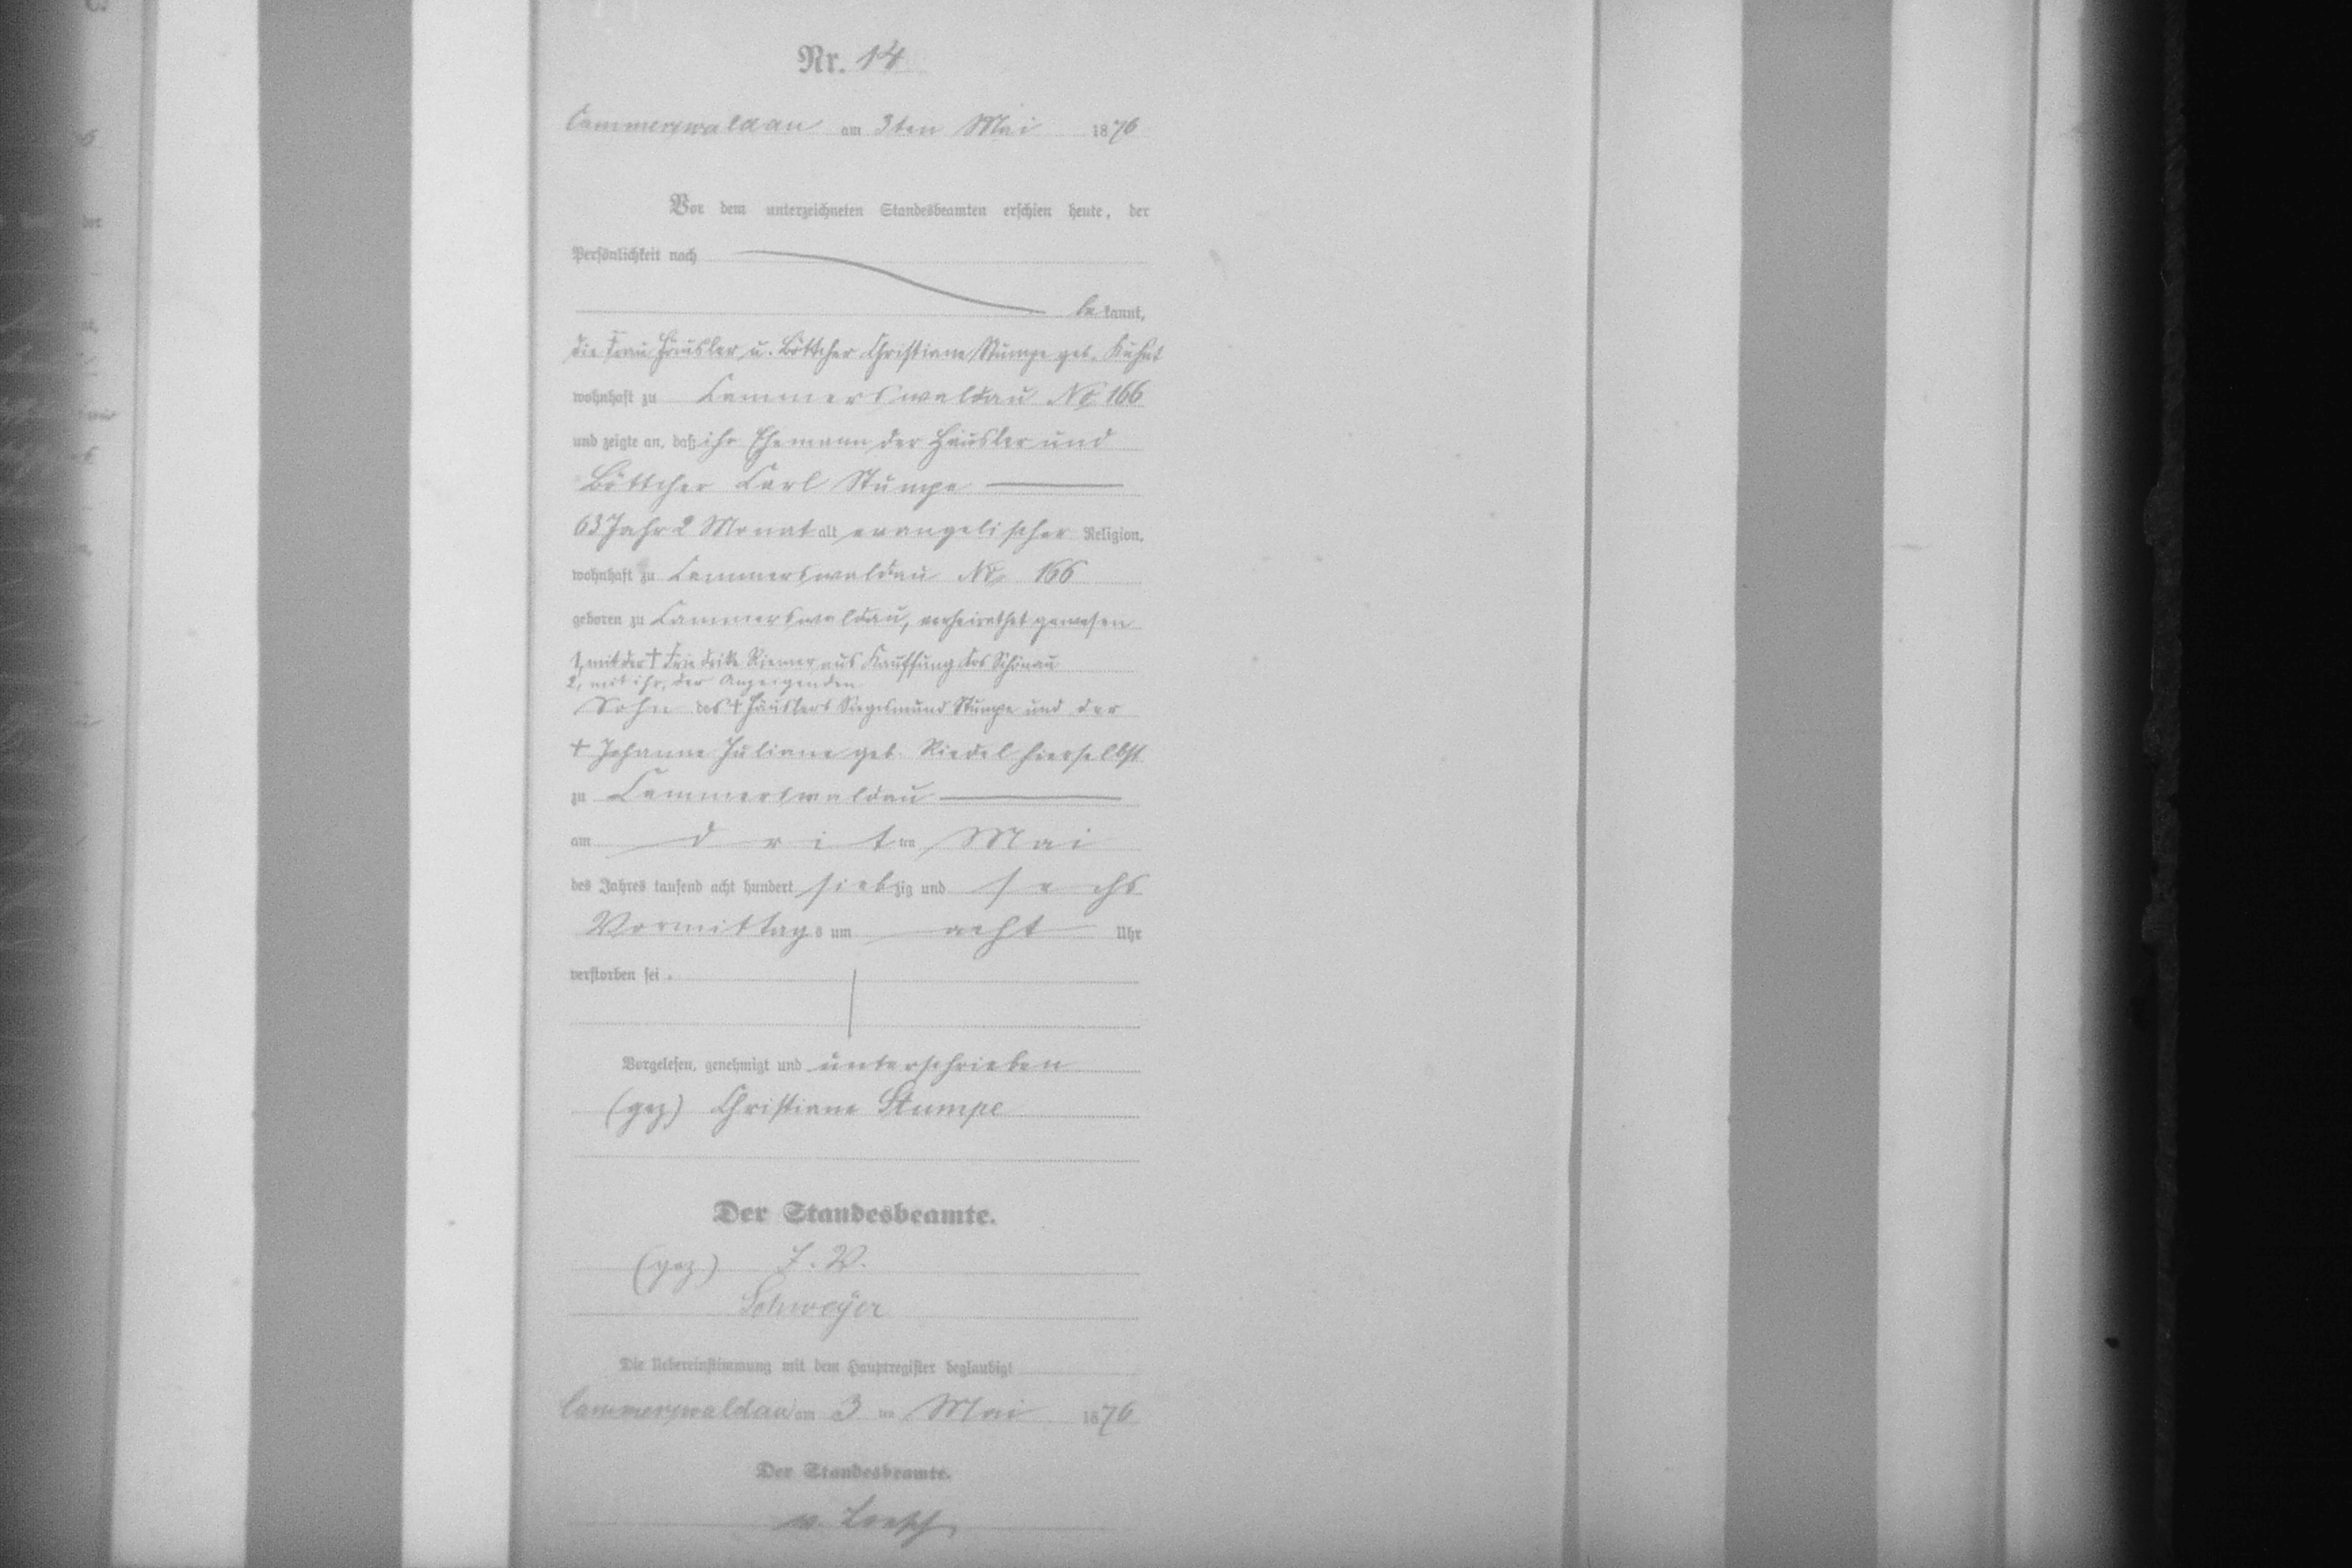 Nr. 14
Cammerswaldau am 3ten Mai 1876
Vor dem unterzeichneten Standesbeamten erschien heute, der
Persönlichkeit nach
bekannt,
die Frau Häusler u. Böttcher Christiane Stumpe geb. Kuhnt
wohnhaft zu Cammerswaldau No 166
und zeigte an, daß ihr Ehemann der Häusler und
Böttcher Carl Stumpe
63 Jahr 2 Monat alt, evangelischer Religion,
wohnhaft zu Cammerswaldau No 166
geboren zu Cammerswaldau, verheirathet gewesen
1, mit der † Friedrike Riemer aus Kauffung Krs Schönau
2, mit ihr, der Anzeigenden
Sohn des † Häuslers Siegesmund Stumpe und der
† Johanne Juliane geb. Riedel hierselbst
zu Cammerswaldau
am dritten Mai
des Jahres tausend acht hundert siebzig und sechs
Vormittags um acht Uhr
verstorben sei.
Vorgelesen, genehmigt und unterschrieben
(gez) Christiane Stumpe
Der Standesbeamte.
(gez) J. V.
Schweyer
Die Uebereinstimmung mit dem Hauptregister beglaubigt
Cammerswaldau am 3 ten Mai 1876
Der Standesbeamte.
v. Loesch